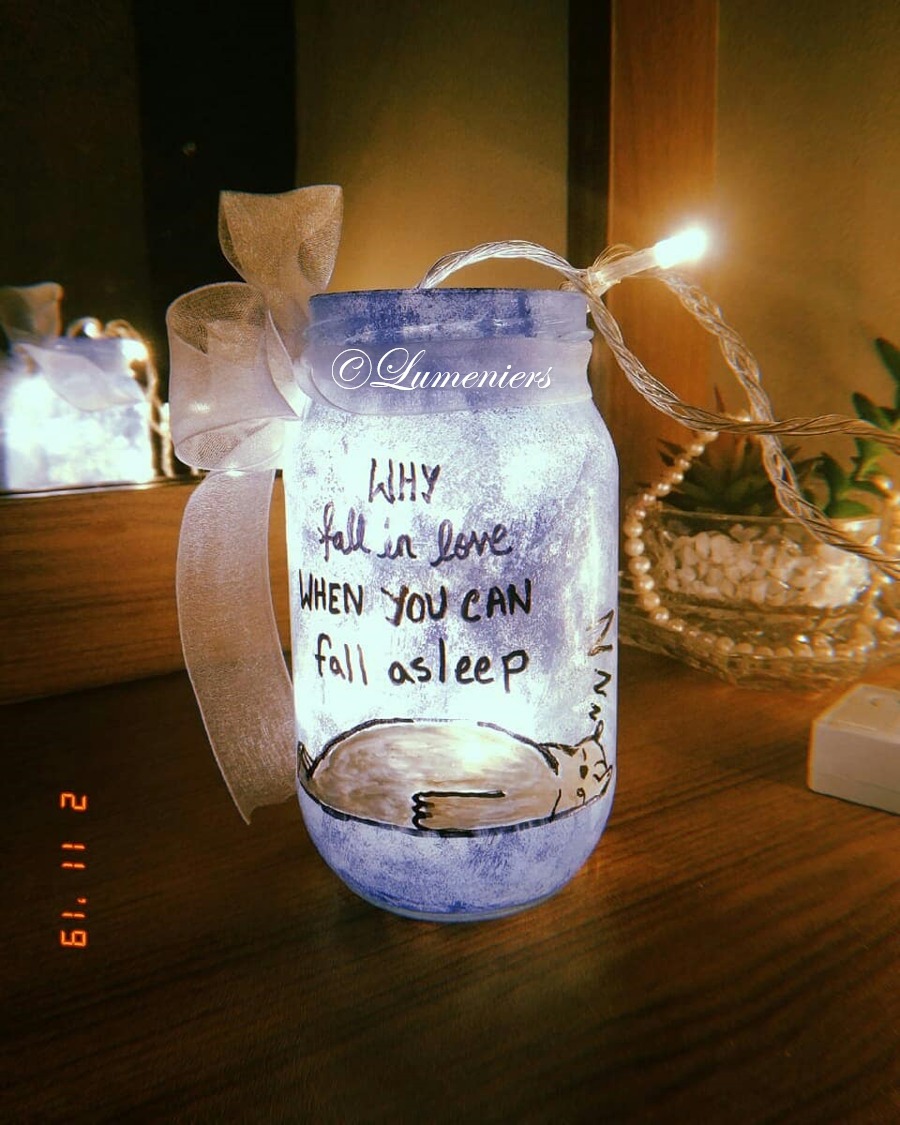 ©Lumeniers
WHY
fall in love
WHEN YOU CAN
fall asleep
zzzZZ
2 11 '19